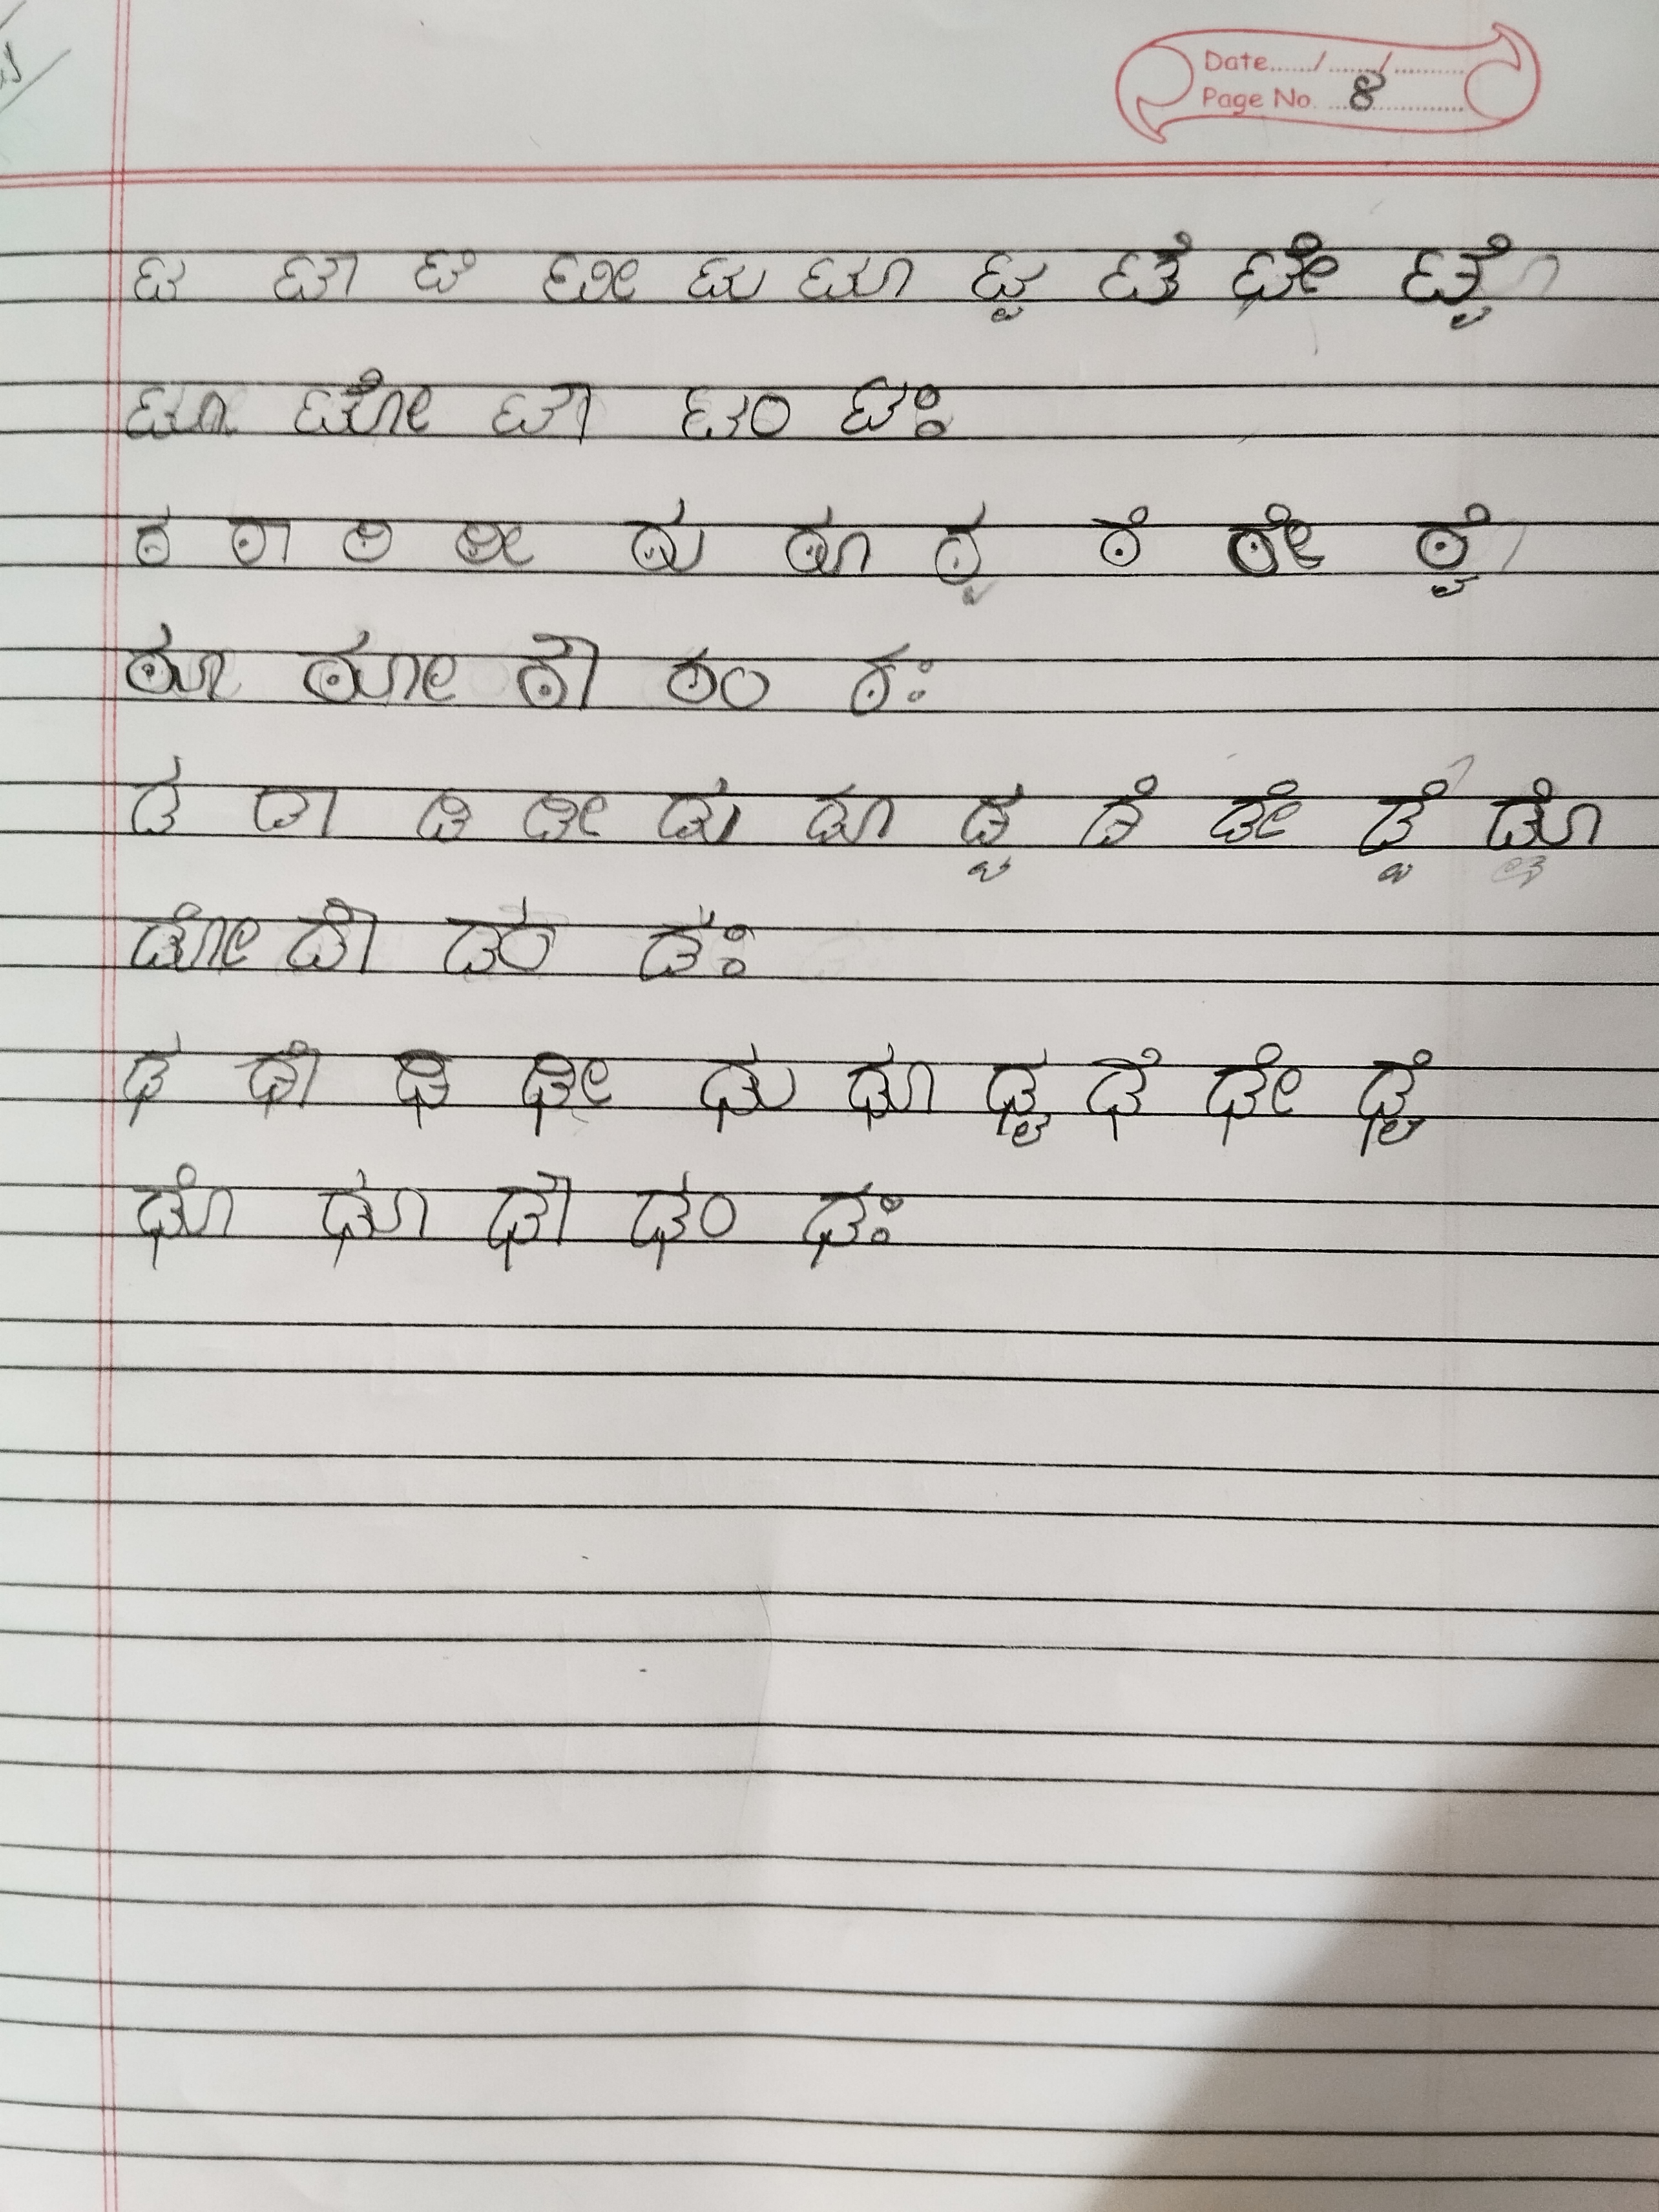 Date....../....../..........
Page No. ...8..............
ಟ ಟಾ ಟಿ ಟೀ ಟು ಟೂ ಟೃ ಟೆ ಟೇ ಟೈ
ಟೂ ಟೋ ಟೌ ಟಂ ಟಃ
ಠ ಠಾ ಠಿ ಠೀ ಠು ಠೂ ಠೃ ಠೆ ಠೇ ಠೈ
ಠೂ ಠೋ ಠೌ ಠಂ ಠಃ
ಡ ಡಾ ಡಿ ಡೀ ಡು ಡೂ ಡೃ ಡೆ ಡೇ ಡೈ ಡೊ
ಡೋ ಡೌ ಡಂ ಡಃ
ಢ ಢಾ ಢಿ ಢೀ ಢು ಢೂ ಢೃ ಢೆ ಢೇ ಢೈ
ಢೊ ಢೂ ಢೌ ಢಂ ಢಃ